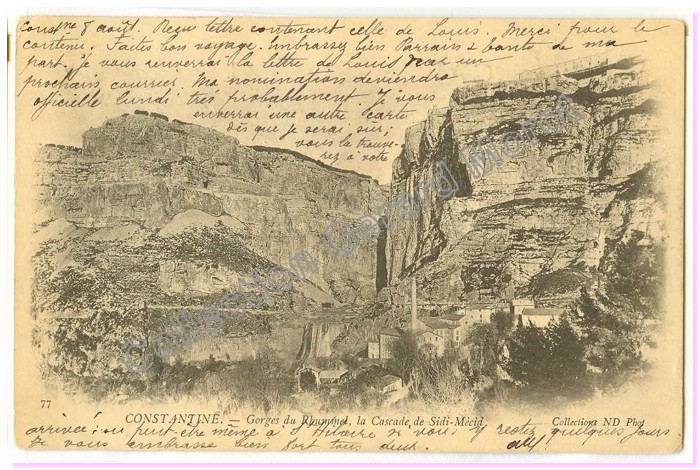 Const.ne 8 août. Reçu lettre contenant celle de Louis. Merci pour le
contenu. Faites bon voyage. Embrassez bien Parrain & tante de ma
part. Je vous renverrai la lettre de Louis par un
prochain courrier. Ma nomination deviendra
officielle lundi très probablement. Je vous
enverrai une autre carte
dès que je serai sûr;
vous la trouve-
rez à votre
Collection Gérard Morel
77
CONSTANTINE. — Gorges du Rhummel, la Cascade de Sidi-Mécid
Collections ND Phot
arrivée; ou peut être même à si vous y restez quelques jours
Je vous embrasse bien fort tous deux.